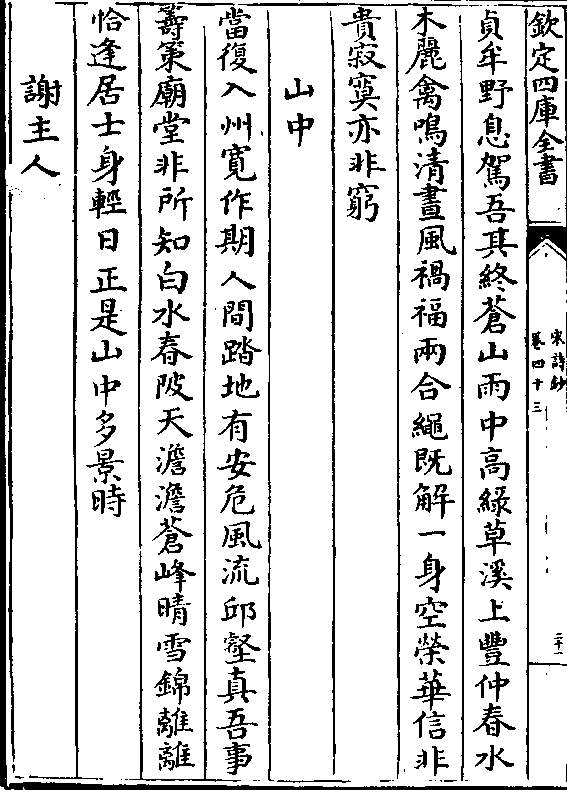 欽定四庫全書
宋詩鈔
卷四十三
二十一
貞牟野息駕吾其終蒼山雨中高綠草溪上豐仲春水
木麗禽鳴清晝風禍福兩合繩既解一身空榮華信非
貴寂寞亦非窮
山中
當復入州寛作期人間踏地有安危風流邱壑真吾事
籌策廟堂非所知白水春陂天澹澹蒼峰晴雪錦離離
恰逢居士身輕日正是山中多景時
謝主人